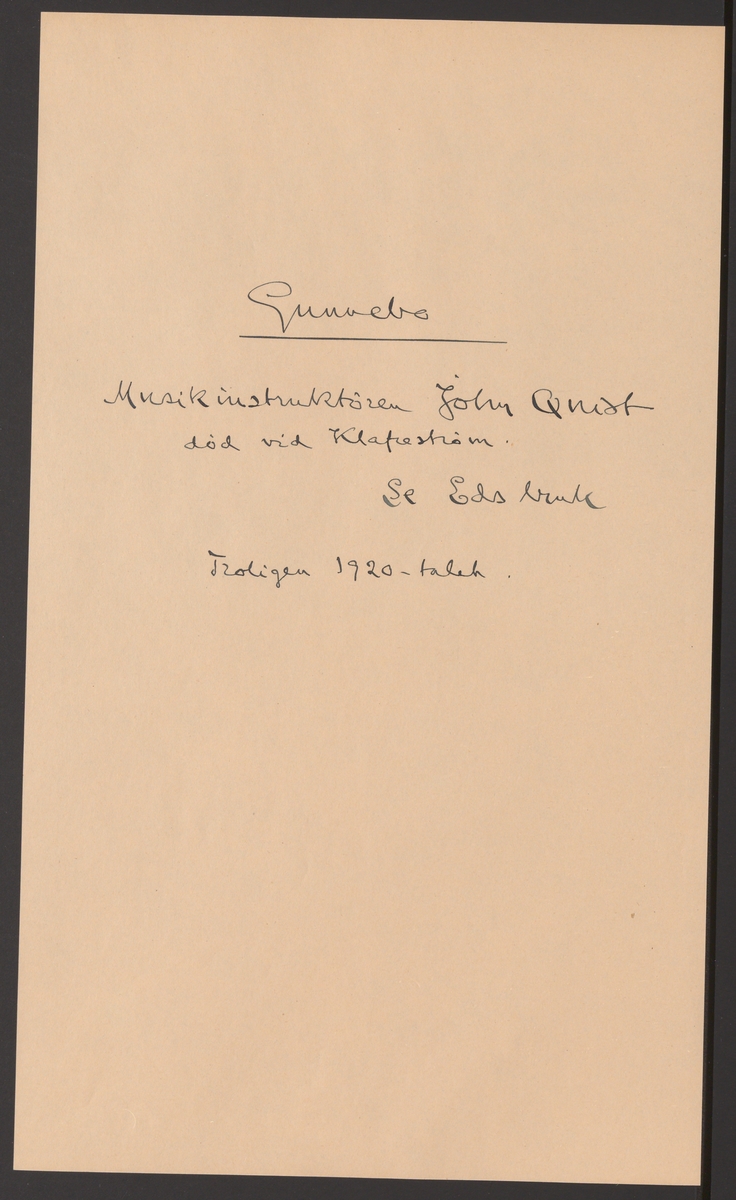 Gunnebo
Musikinstruktören John Qvist
död vid Klafreström.
Se Eds bruk
Troligen 1920-talet.